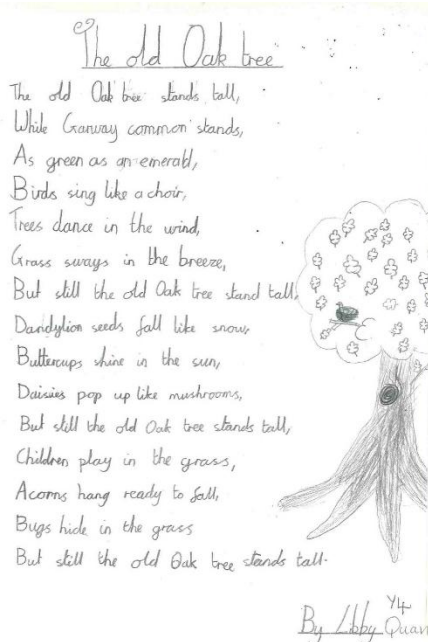 The old Oak tree
The old Oak tree stands tall,
While Garway common stands,
As green as an emerald,
Birds sing like a choir,
Trees dance in the wind,
Grass sways in the breeze,
But still the old Oak tree stand tall,
Dandylion seeds fall like snow,
Buttercups shine in the sun,
Daisies pop up like mushrooms,
But still the old Oak tree stands tall,
Children play in the grass,
Acorns hang ready to fall,
Bugs hide in the grass
But still the old Oak tree stands tall.
Y4
By Libby